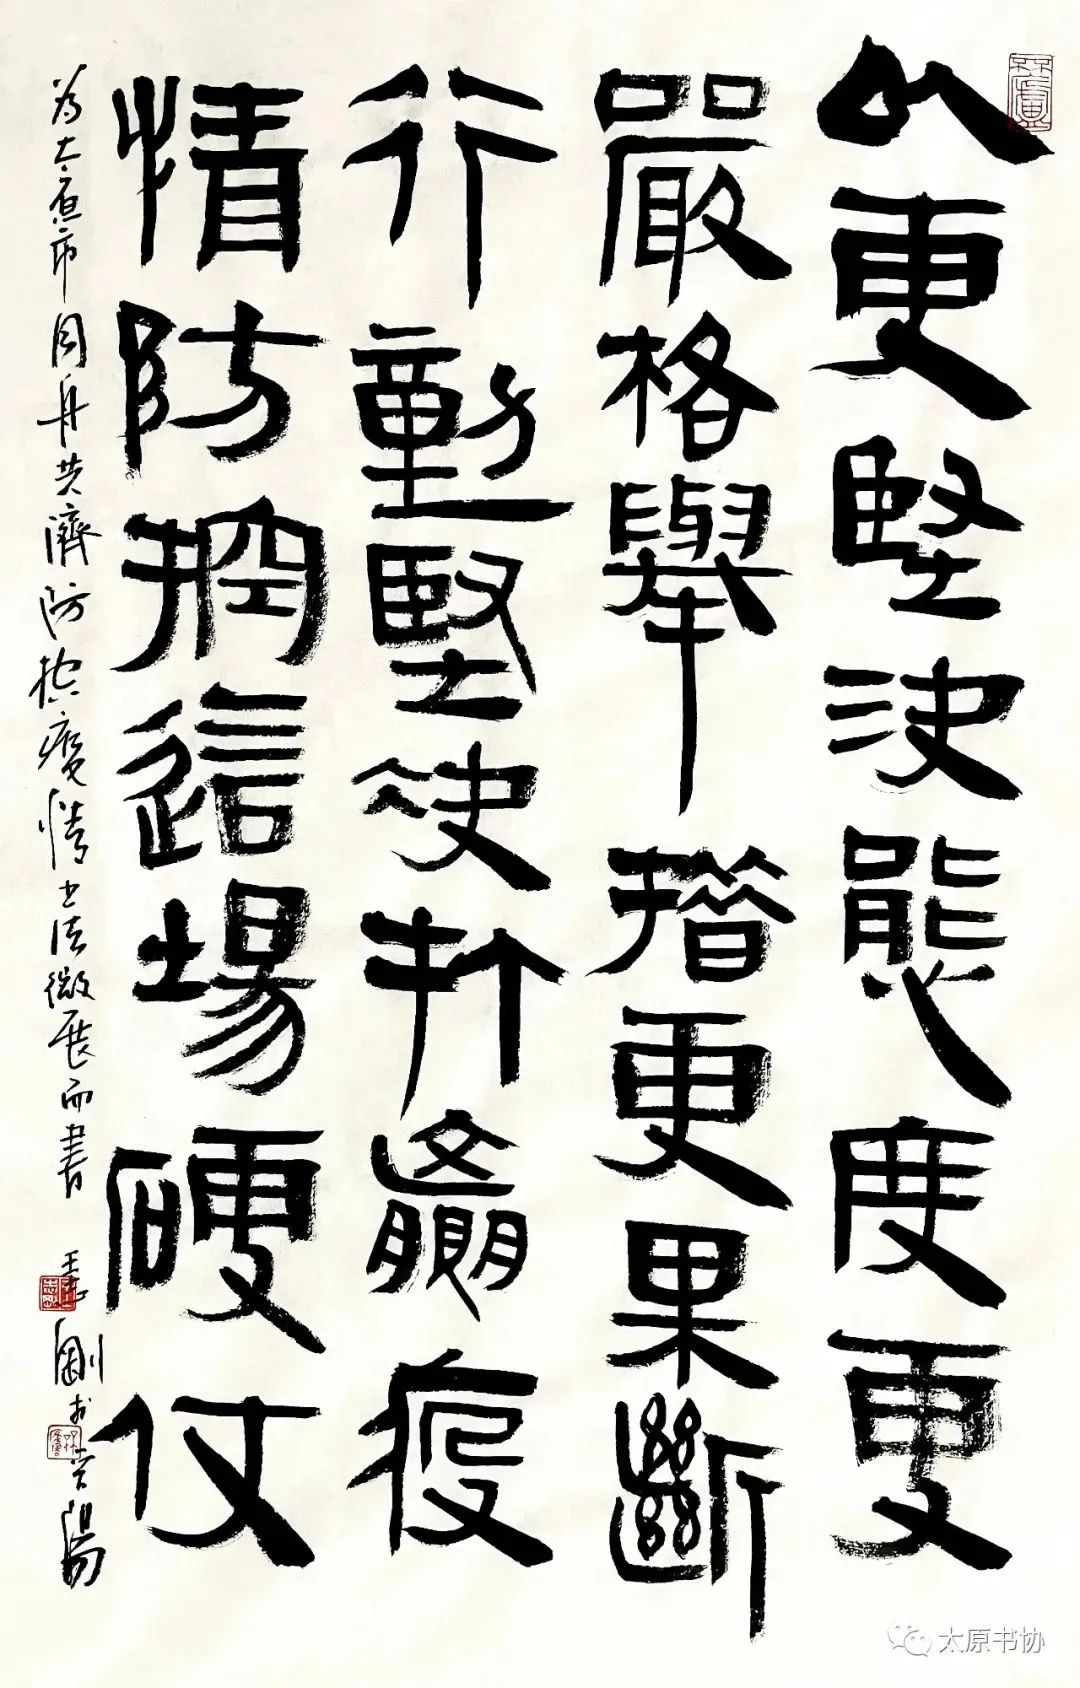 以更堅決態度更
嚴格舉措更果斷
行動堅決打贏疫
情防控這場硬仗
為太原市同舟共濟防控疫情书法微展而書 王志剛於晉陽
太原书协